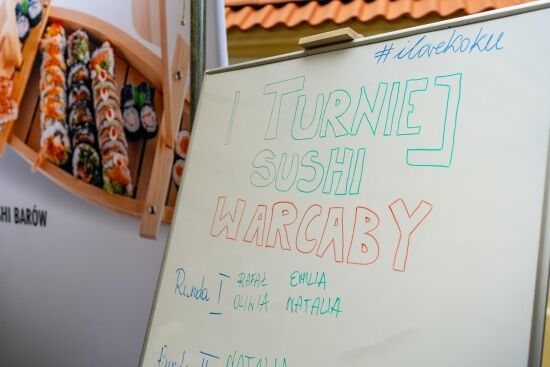 #ilovekoku
I TURNIEJ
SUSHI
WARCABY
HI BARÓW
Runda I RAFAŁ EMILIA
OLIWIA NATALIA
Runda II NATALIA